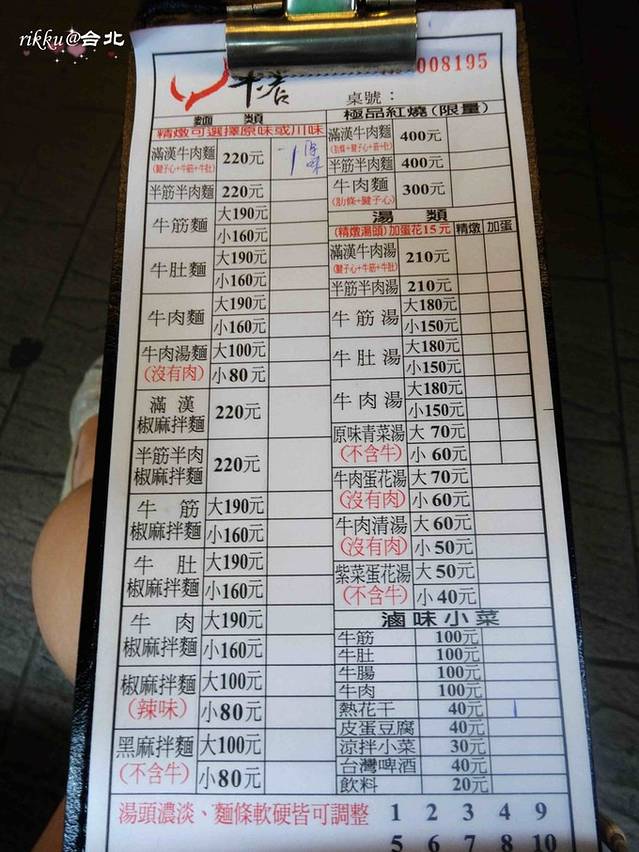 rikku@台北
008195
桌號：
麵 類
精燉可選擇原味或川味
滿漢牛肉麵 220元 1 原味
(腱子心+牛筋+牛肚)
半筋半肉麵 220元
牛筋麵 大190元
小160元
牛肚麵 大190元
小160元
牛肉麵 大190元
小160元
牛肉湯麵 大100元
(沒有肉) 小80元
滿漢
椒麻拌麵 220元
半筋半肉
椒麻拌麵 220元
牛筋 大190元
椒麻拌麵 小160元
牛肚 大190元
椒麻拌麵 小160元
牛肉 大190元
椒麻拌麵 小160元
椒麻拌麵 大100元
(辣味) 小80元
黑麻拌麵 大100元
(不含牛) 小80元
極品紅燒(限量)
滿漢牛肉麵 400元
半筋半肉麵 400元
牛肉麵 300元
(肋條+腱子心)
湯 類
(精燉湯頭)加蛋花15元 精燉 加蛋
滿漢牛肉湯 210元
(腱子心+牛筋+牛肚)
半筋半肉湯 210元
牛筋湯 大180元
小150元
牛肚湯 大180元
小150元
牛肉湯 大180元
小150元
原味青菜湯 大 70元
(不含牛) 小 60元
牛肉蛋花湯 大 70元
(沒有肉) 小 60元
牛肉清湯 大 60元
(沒有肉) 小 50元
紫菜蛋花湯 大 50元
(不含牛) 小 40元
滷味小菜
牛筋 100元
牛肚 100元
牛腸 100元
牛肉 100元
熱花干 40元
皮蛋豆腐 40元
涼拌小菜 30元
台灣啤酒 40元
飲料 20元
湯頭濃淡、麵條軟硬皆可調整
1 2 3 4 9
5 6 7 8 10